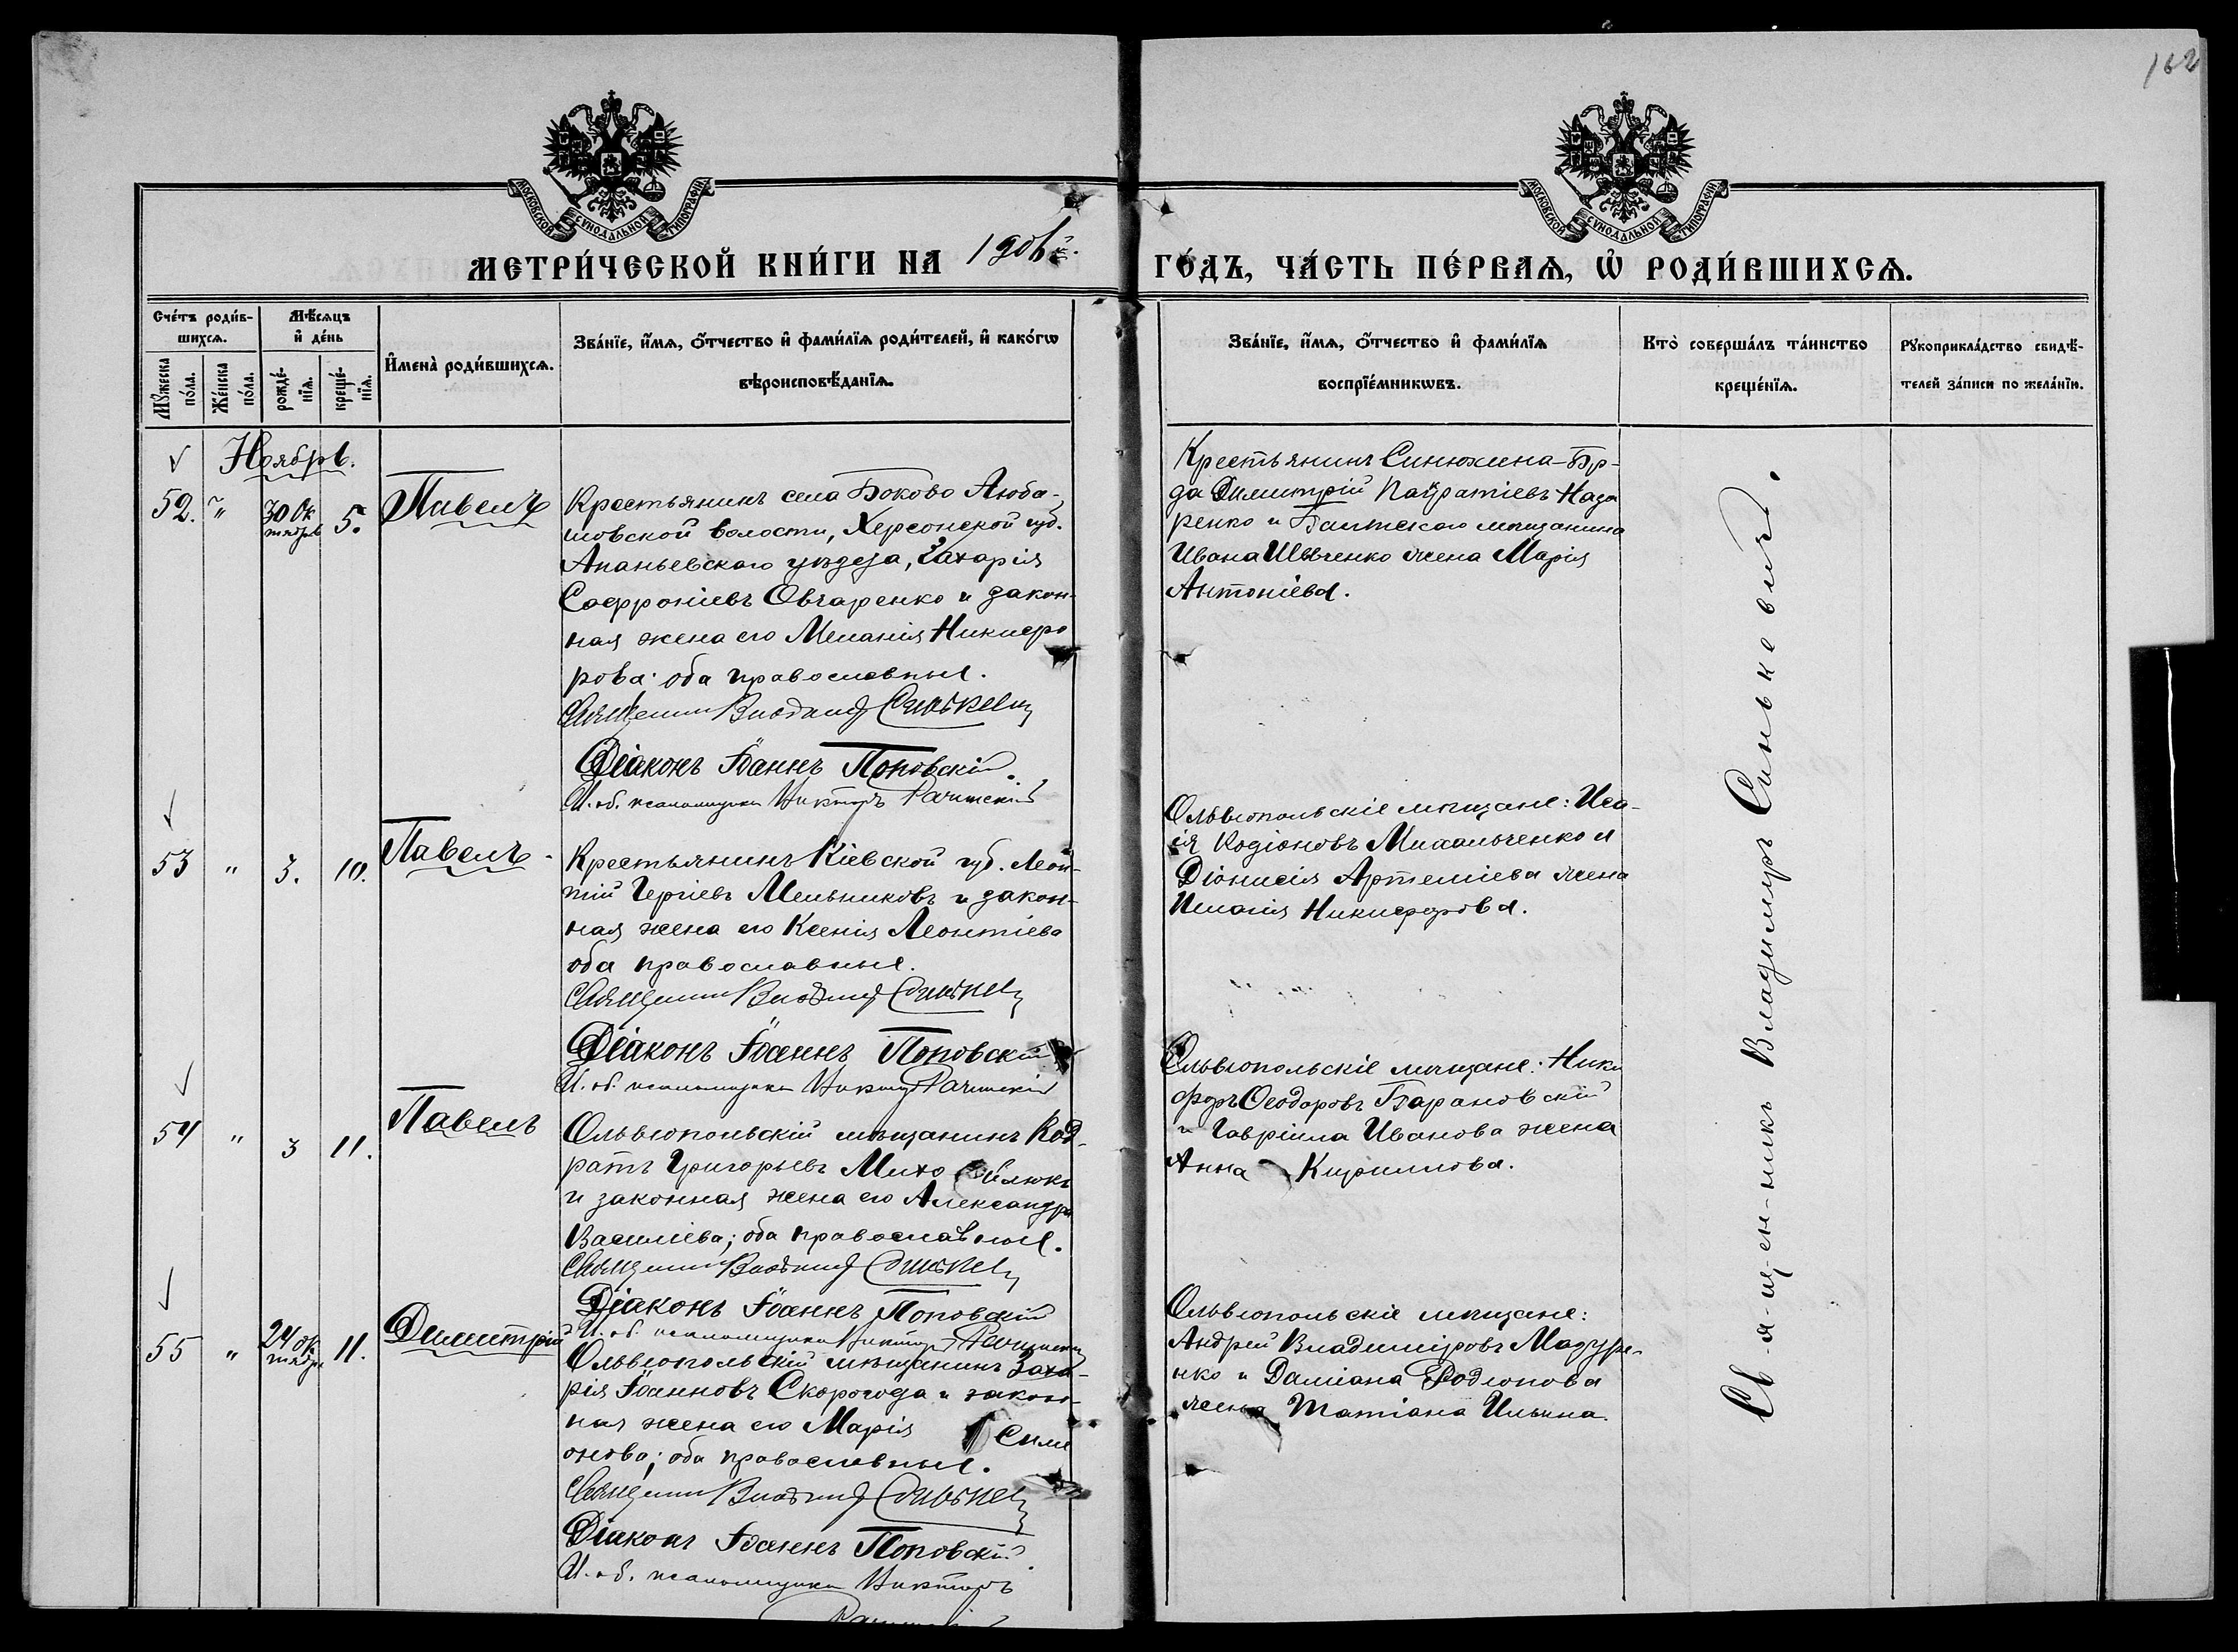 162
МОСКОВСКОЙ СѴНОДАЛЬНОЙ ТИПОГРАФІИ
МОСКОВСКОЙ СѴНОДАЛЬНОЙ ТИПОГРАФІИ
МЕТРИ́ЧЕСКОЙ КНИ́ГИ НА 190
ГО́ДЪ, ЧА́СТЬ ПЕ́РВАѦ, Ѡ҆ РОДИ́ВШИХСѦ.
Сче́тъ роди́в-
шихсѧ.
Мѣ́сѧцъ
и҆ де́нь
Мꙋ́жеска по́ла.
Же́нска по́ла.
рожде́-
нїѧ.
креще́-
нїѧ.
И҆мена̀ роди́вшихсѧ.
Зва́нїе, и҆́мѧ, ѻ҆́тчество и҆ фами́лїѧ роди́телей, и҆ како́гѡ
вѣроисповѣ́данїѧ.
Зва́нїе, и҆́мѧ, ѻ҆́тчество и҆ фами́лїѧ
воспрїе́мникѡвъ.
Кто̀ соверша́лъ та́инство
креще́нїѧ.
Рꙋкоприкла́дство свидѣ́-
телей за́писи по жела́нїю.
Ноябрь.
52. " 30 Ок
тября 5. Павелъ
Крестьянинъ села Боково Люба-
шовской волости, Херсонской губ.
Ананьевскаго уѣзда, Захарія
Софроніевъ Овчаренко и закон-
ная жена его Меланія Никифо
рова; оба православные.
Священникъ Владиміръ Синькевичъ
Діаконъ Іоаннъ Поповскій.
И. об. псаломщика Викторъ Рачинскій
Крестьянинъ Синюхина-Бр-
да Димитрій Панкратіевъ Наза
ренко и Балтскаго мѣщанина
Ивана Шевченко жена Марія
Антоніева.
53 " 3. 10. Павелъ
Крестьянинъ Кіевской губ. Леон-
тій Сергіевъ Мельниковъ и закон-
ная жена его Ксенія Леонтіева
оба православные.
Священникъ Владиміръ Синькевичъ
Діаконъ Іоаннъ Поповскій
И. об. псаломщика Викторъ Рачинскій
Ольвіопольскіе мѣщане: Иса-
ія Родіоновъ Михальченко и
Діонисія Артеміева жена
Никифорова.
54 " 3 11. Павелъ
Ольвіопольскій мѣщанинъ Код-
ратъ Григорьевъ
и законная жена его Александра
Василіева; оба православные.
Священникъ Владиміръ Синькевичъ
Діаконъ Іоаннъ Поповскій
И. об. псаломщика Викторъ Рачинскій
Ольвіопольскіе мѣщане: Ники
форъ Ѳеодоровъ Барановскій
и Гавріила Иванова жена
Анна Кириллова.
55 " 24 Ок
тября 11. Димитрій
Ольвіопольскій мѣщанинъ Заха-
рія Іоанновъ Скорогода и закон-
ная жена его Марія Симе
онова; оба православные.
Священникъ Владиміръ Синькевичъ
Діаконъ Іоаннъ Поповскій
И. об. псаломщика Викторъ
Рачинскій
Ольвіопольскіе мѣщане:
Андрей Владиміровъ Мазуре-
нко и Даміана Родіонова
жена Татіана Ильина.
Св-я-щ-ен-никъ Владимиръ Синькевичъ.